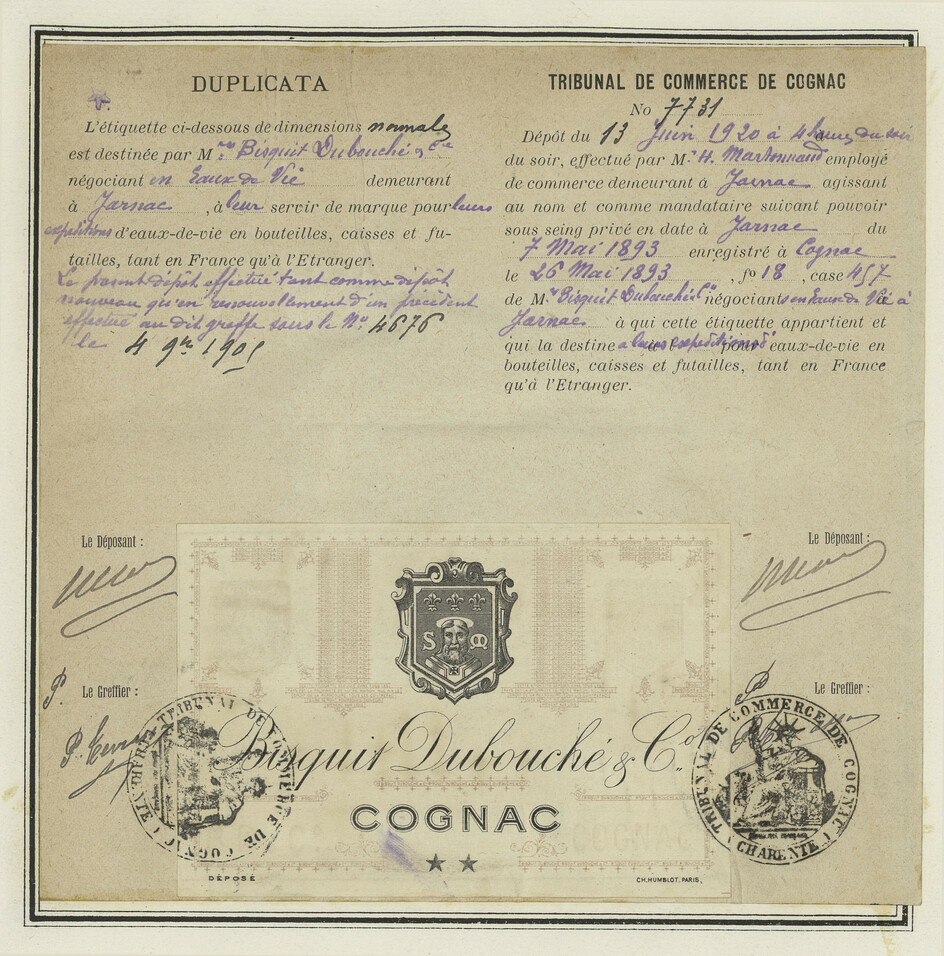 DUPLICATA
L'étiquette ci-dessous de dimensions normale
est destinée par Mrs Bisquit Dubouché & Cie
négociant en Eaux de Vie demeurant
à Jarnac, à leur servir de marque pour leurs
expéditions d'eaux-de-vie en bouteilles, caisses et fu-
tailles, tant en France qu'à l'Etranger.
Le présent dépôt effectué tant comme dépôt
nouveau qu'en renouvellement d'un précédent
effectué au dit greffe sous le No 4676
le 4 9bre 1905
TRIBUNAL DE COMMERCE DE COGNAC
No 7731
Dépôt du 13 Juin 1920 à 4 heures du soir
du soir, effectué par M. H. employé
de commerce demeurant à Jarnac agissant
au nom et comme mandataire suivant pouvoir
sous seing privé en date à Jarnac du
7 Mai 1893 enregistré à Cognac
le 26 Mai 1893, fo 18, case 457
de Mrs Bisquit Dubouché & Cie négociants en Eaux de Vie à
Jarnac à qui cette étiquette appartient et
qui la destine à leurs expéditions d'eaux-de-vie en
bouteilles, caisses et futailles, tant en France
qu'à l'Etranger.
Le Déposant :
Le Déposant :
P. Le Greffier :
P. Le Greffier :
S M
Bisquit Dubouché & Co.
COGNAC
DÉPOSÉ
CH. HUMBLOT. PARIS.
TRIBUNAL DE COMMERCE DE COGNAC
TRIBUNAL DE COMMERCE DE COGNAC
CHARENTE